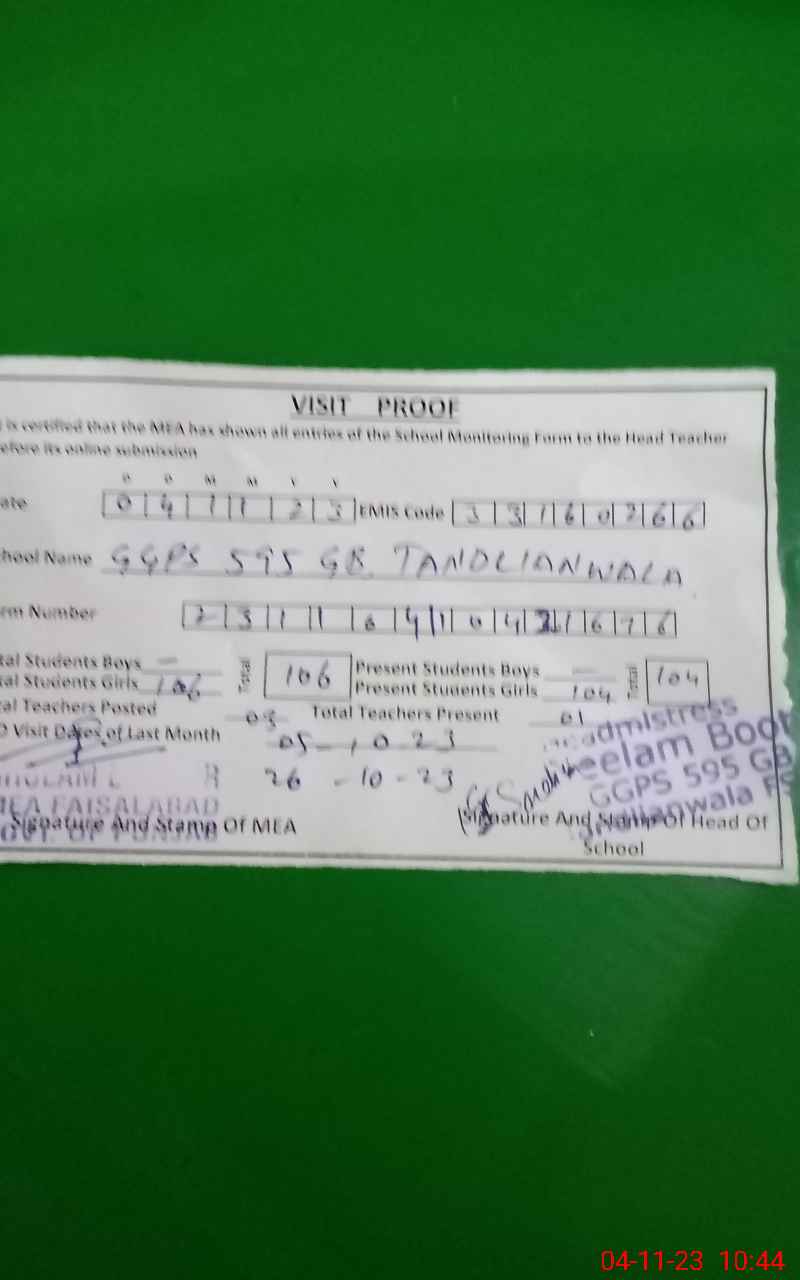 VISIT PROOF
is certified that the MEA has shown all entries of the School Monitoring Form to the Head Teacher
efore its online submission
D D M M Y Y
ate 0 4 1 1 2 3 EMIS Code 3 3 1 6 0 2 6 6
hool Name GGPS 595 GB TANDLIANWALA
rm Number 2 3 1 1 0 4 1 0 4 1 6 7 6
tal Students Boys — Total 106 Present Students Boys — Total 104
tal Students Girls 106 Present Students Girls 104
al Teachers Posted 03 Total Teachers Present 01
O Visit Dates of Last Month 05-10-23
26-10-23
admistress
eelam Boot
GGPS 595 GB
dlianwala FS
MEA FAISALABAD
GOVT. OF PUNJAB
Signature And Stamp Of MEA
Signature And Stamp Of Head Of
School
04-11-23 10:44